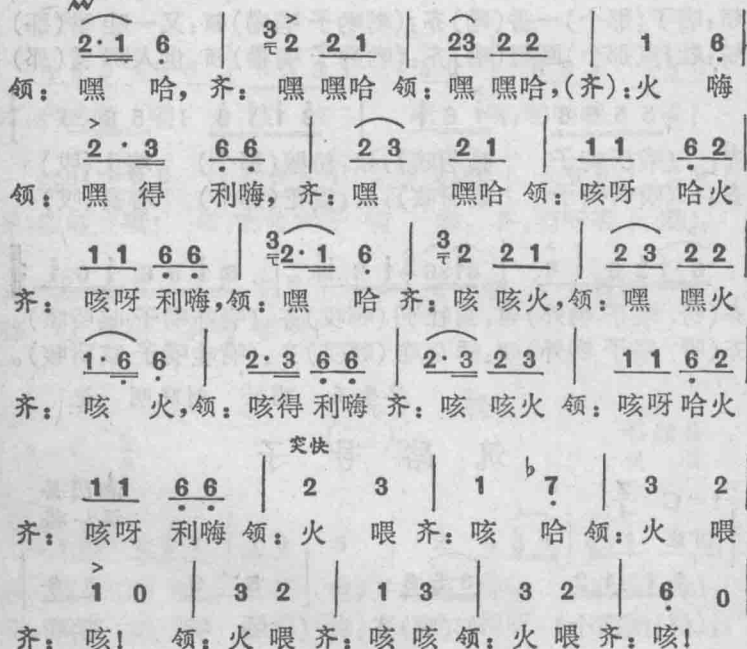 2·1 6 | 3 2 2 1 | 23 22 | 1 6 |
领：嘿 哈，齐：嘿 嘿哈 领：嘿 嘿哈，(齐)：火 嗨
2·3 6 6 | 2 3 2 1 | 1 1 6 2
领：嘿 得 利嗨，齐：嘿 嘿哈 领：咳呀 哈火
1 1 6 6 | 3 2·1 6 | 3 2 2 1 | 2 3 2 2
齐：咳呀 利嗨，领：嘿 哈 齐：咳 咳火，领：嘿 嘿火
1·6 6 | 2·3 6 6 | 2·3 2 2 | 1 1 6 2
齐：咳 火，领：咳得 利嗨 齐：咳 咳火 领：咳呀 哈火
突快
1 1 6 6 | 2 3 | 1 ♭7 | 3 2
齐：咳呀 利嗨 领：火 喂 齐：咳 哈 领：火 喂
1 0 | 3 2 | 1 3 | 3 2 | 6 0
齐：咳！ 领：火 喂 齐：咳 咳 领：火 喂 齐：咳！